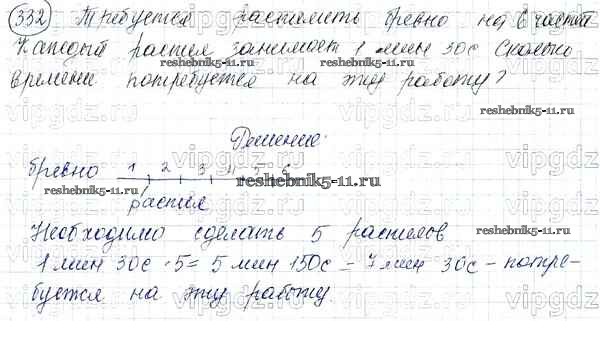 332 Требуется распилить бревно на 6 частей
Каждый распил занимает 1 мин 30с Сколько
времени потребуется на эту работу?
reshebnik5-11.ru reshebnik5-11.ru
Решение:
бревно 1 2 3 4 5 6
reshebnik5-11.ru reshebnik5-11.ru
распил
Необходимо сделать 5 распилов
reshebnik5-11.ru
1 мин 30с · 5 = 5 мин 150с = 7 мин 30с – потре-
буется на эту работу.
reshebnik5-11.ru
vipgdz.com